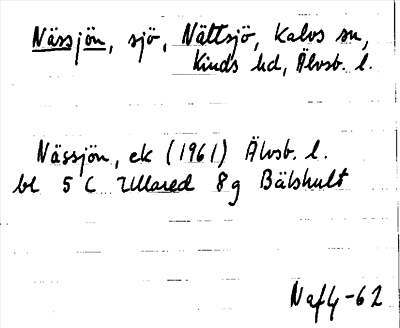 Nässjön, sjö, Nättsjö, Kalvs sn,
Kinds hd, Älvsb. l.
Nässjön, ek (1961) Älvsb. l.
bl 5 C Ullared 8g Bälshult
Naf4-62